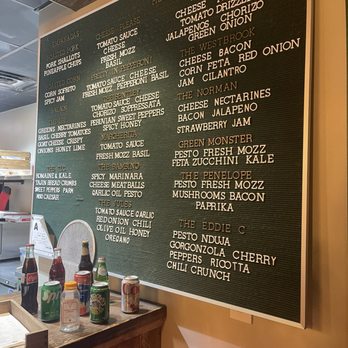 PORK SHALLOTS
PINEAPPLE CHIPS
CORN SOFRITO
SPICY JAM
GREENS NECTARINES
BASIL CHERRY TOMATOES
GOAT CHEESE CRISPY
ONIONS HONEY LIME
ROMAINE & KALE
TAJIN BREAD CRUMBS
SWEET PEPPERS PARM
CAESAR
CHEESE PLEASE
TOMATO SAUCE
CHEESE
FRESH MOZZ
BASIL
PEPPERONI
TOMATO SAUCE CHEESE
FRESH MOZZ PEPPERONI BASIL
TOMATO SAUCE CHEESE
CHORIZO SOPPRESSATA
PERUVIAN SWEET PEPPERS
SPICY HONEY
TOMATO SAUCE
FRESH MOZZ BASIL
SPICY MARINARA
CHEESE MEATBALLS
GARLIC OIL PESTO
THE JULES
TOMATO SAUCE GARLIC
RED ONION CHILI
OLIVE OIL HONEY
OREGANO
CHEESE
TOMATO DRIZZLE
JALAPENOS CHORIZO
GREEN ONION
THE WESTBROOK
CHEESE BACON
CORN FETA RED ONION
JAM CILANTRO
THE NORMAN
CHEESE NECTARINES
BACON JALAPENO
STRAWBERRY JAM
GREEN MONSTER
PESTO FRESH MOZZ
FETA ZUCCHINI KALE
THE PENELOPE
PESTO FRESH MOZZ
MUSHROOMS BACON
PAPRIKA
THE EDDIE C
PESTO NDUJA
GORGONZOLA CHERRY
PEPPERS RICOTTA
CHILI CRUNCH
A